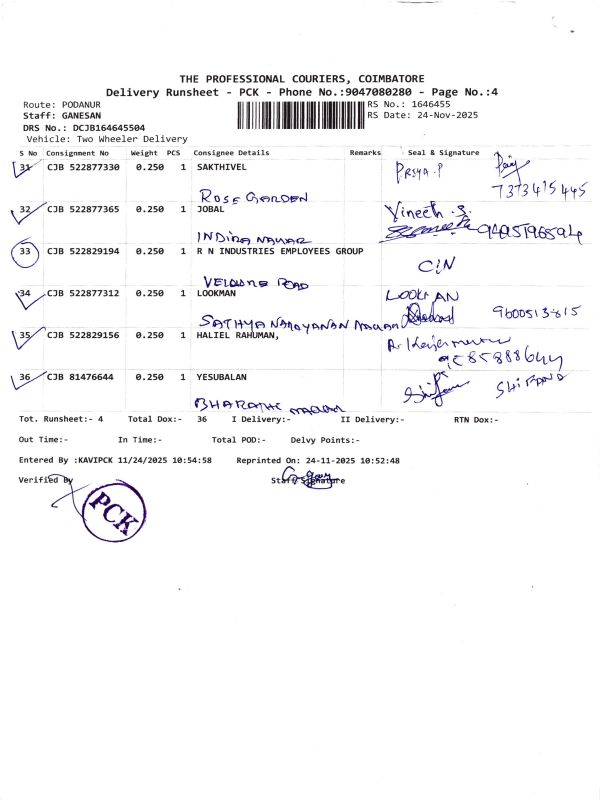 THE PROFESSIONAL COURIERS, COIMBATORE
Delivery Runsheet - PCK - Phone No.:9047080280 - Page No.:4
Route: PODANUR RS No.: 1646455
Staff: GANESAN RS Date: 24-Nov-2025
DRS No.: DCJB164645504
Vehicle: Two Wheeler Delivery
S No Consignment No Weight PCS Consignee Details Remarks Seal & Signature
31 CJB 522877330 0.250 1 SAKTHIVEL PRIYA.P
7373415445
ROSE GARDEN
32 CJB 522877365 0.250 1 JOBAL Vineeth .S.
INDIRA NAGAR
33 CJB 522829194 0.250 1 R N INDUSTRIES EMPLOYEES GROUP
C/N
VELLORE ROAD
34 CJB 522877312 0.250 1 LOOKMAN LOOKMAN
9600513815
SATHYA NARAYANAN NAGAR
35 CJB 522829156 0.250 1 HALIEL RAHUMAN,
36 CJB 81476644 0.250 1 YESUBALAN
BHARATHI NAGAR
Tot. Runsheet:- 4 Total Dox:- 36 I Delivery:- II Delivery:- RTN Dox:-
Out Time:- In Time:- Total POD:- Delvy Points:-
Entered By :KAVIPCK 11/24/2025 10:54:58 Reprinted On: 24-11-2025 10:52:48
Verified By Staff Signature
PCK